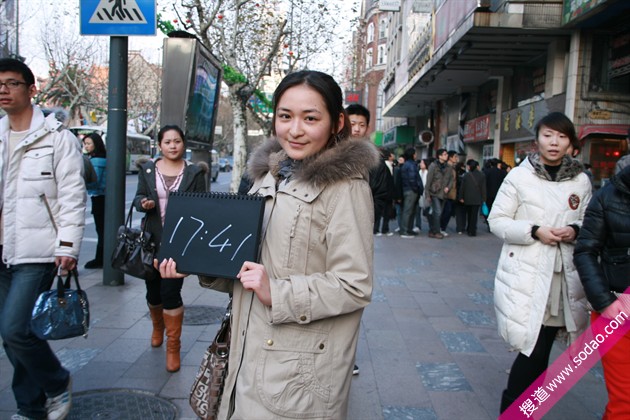 17:41
搜道www.sodao.com